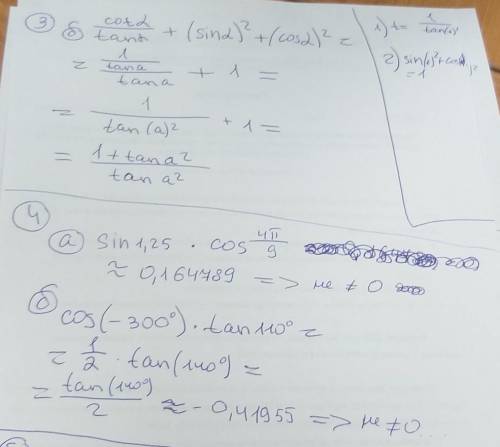 ③ б) cotα/tanα + (sinα)² + (cosα)² =
= (1/tan a)/tan a + 1 =
= 1/tan(a)² + 1 =
= (1 + tan a²)/tan a²
1) t = 1/tan(a)
2) sin(a)² + cos(a)²
= 1
④
а) sin 1,25 · cos 4π/9
≈ 0,164789 => не ≠ 0
б)
cos(-300°) · tan 110° =
= 1/2 · tan(140°) =
= tan(140°)/2 ≈ - 0,41955 => не ≠ 0